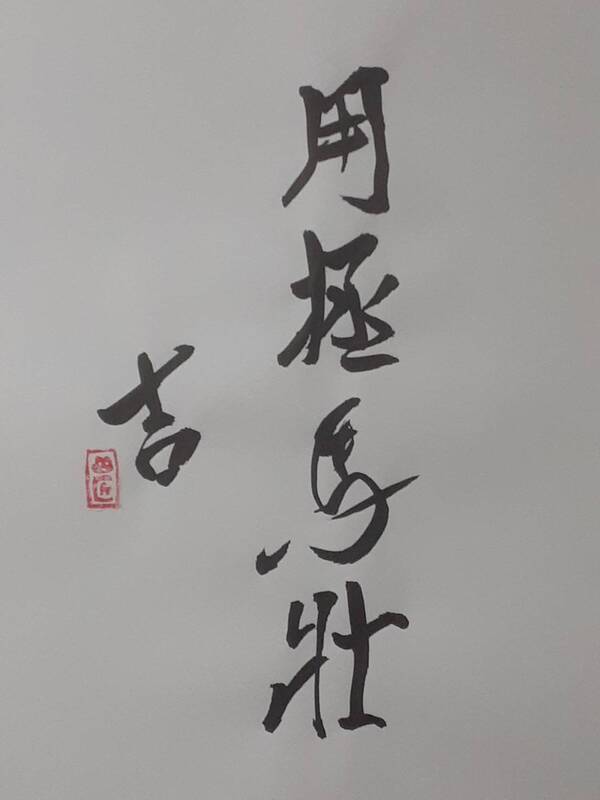 用拯馬壯
吉